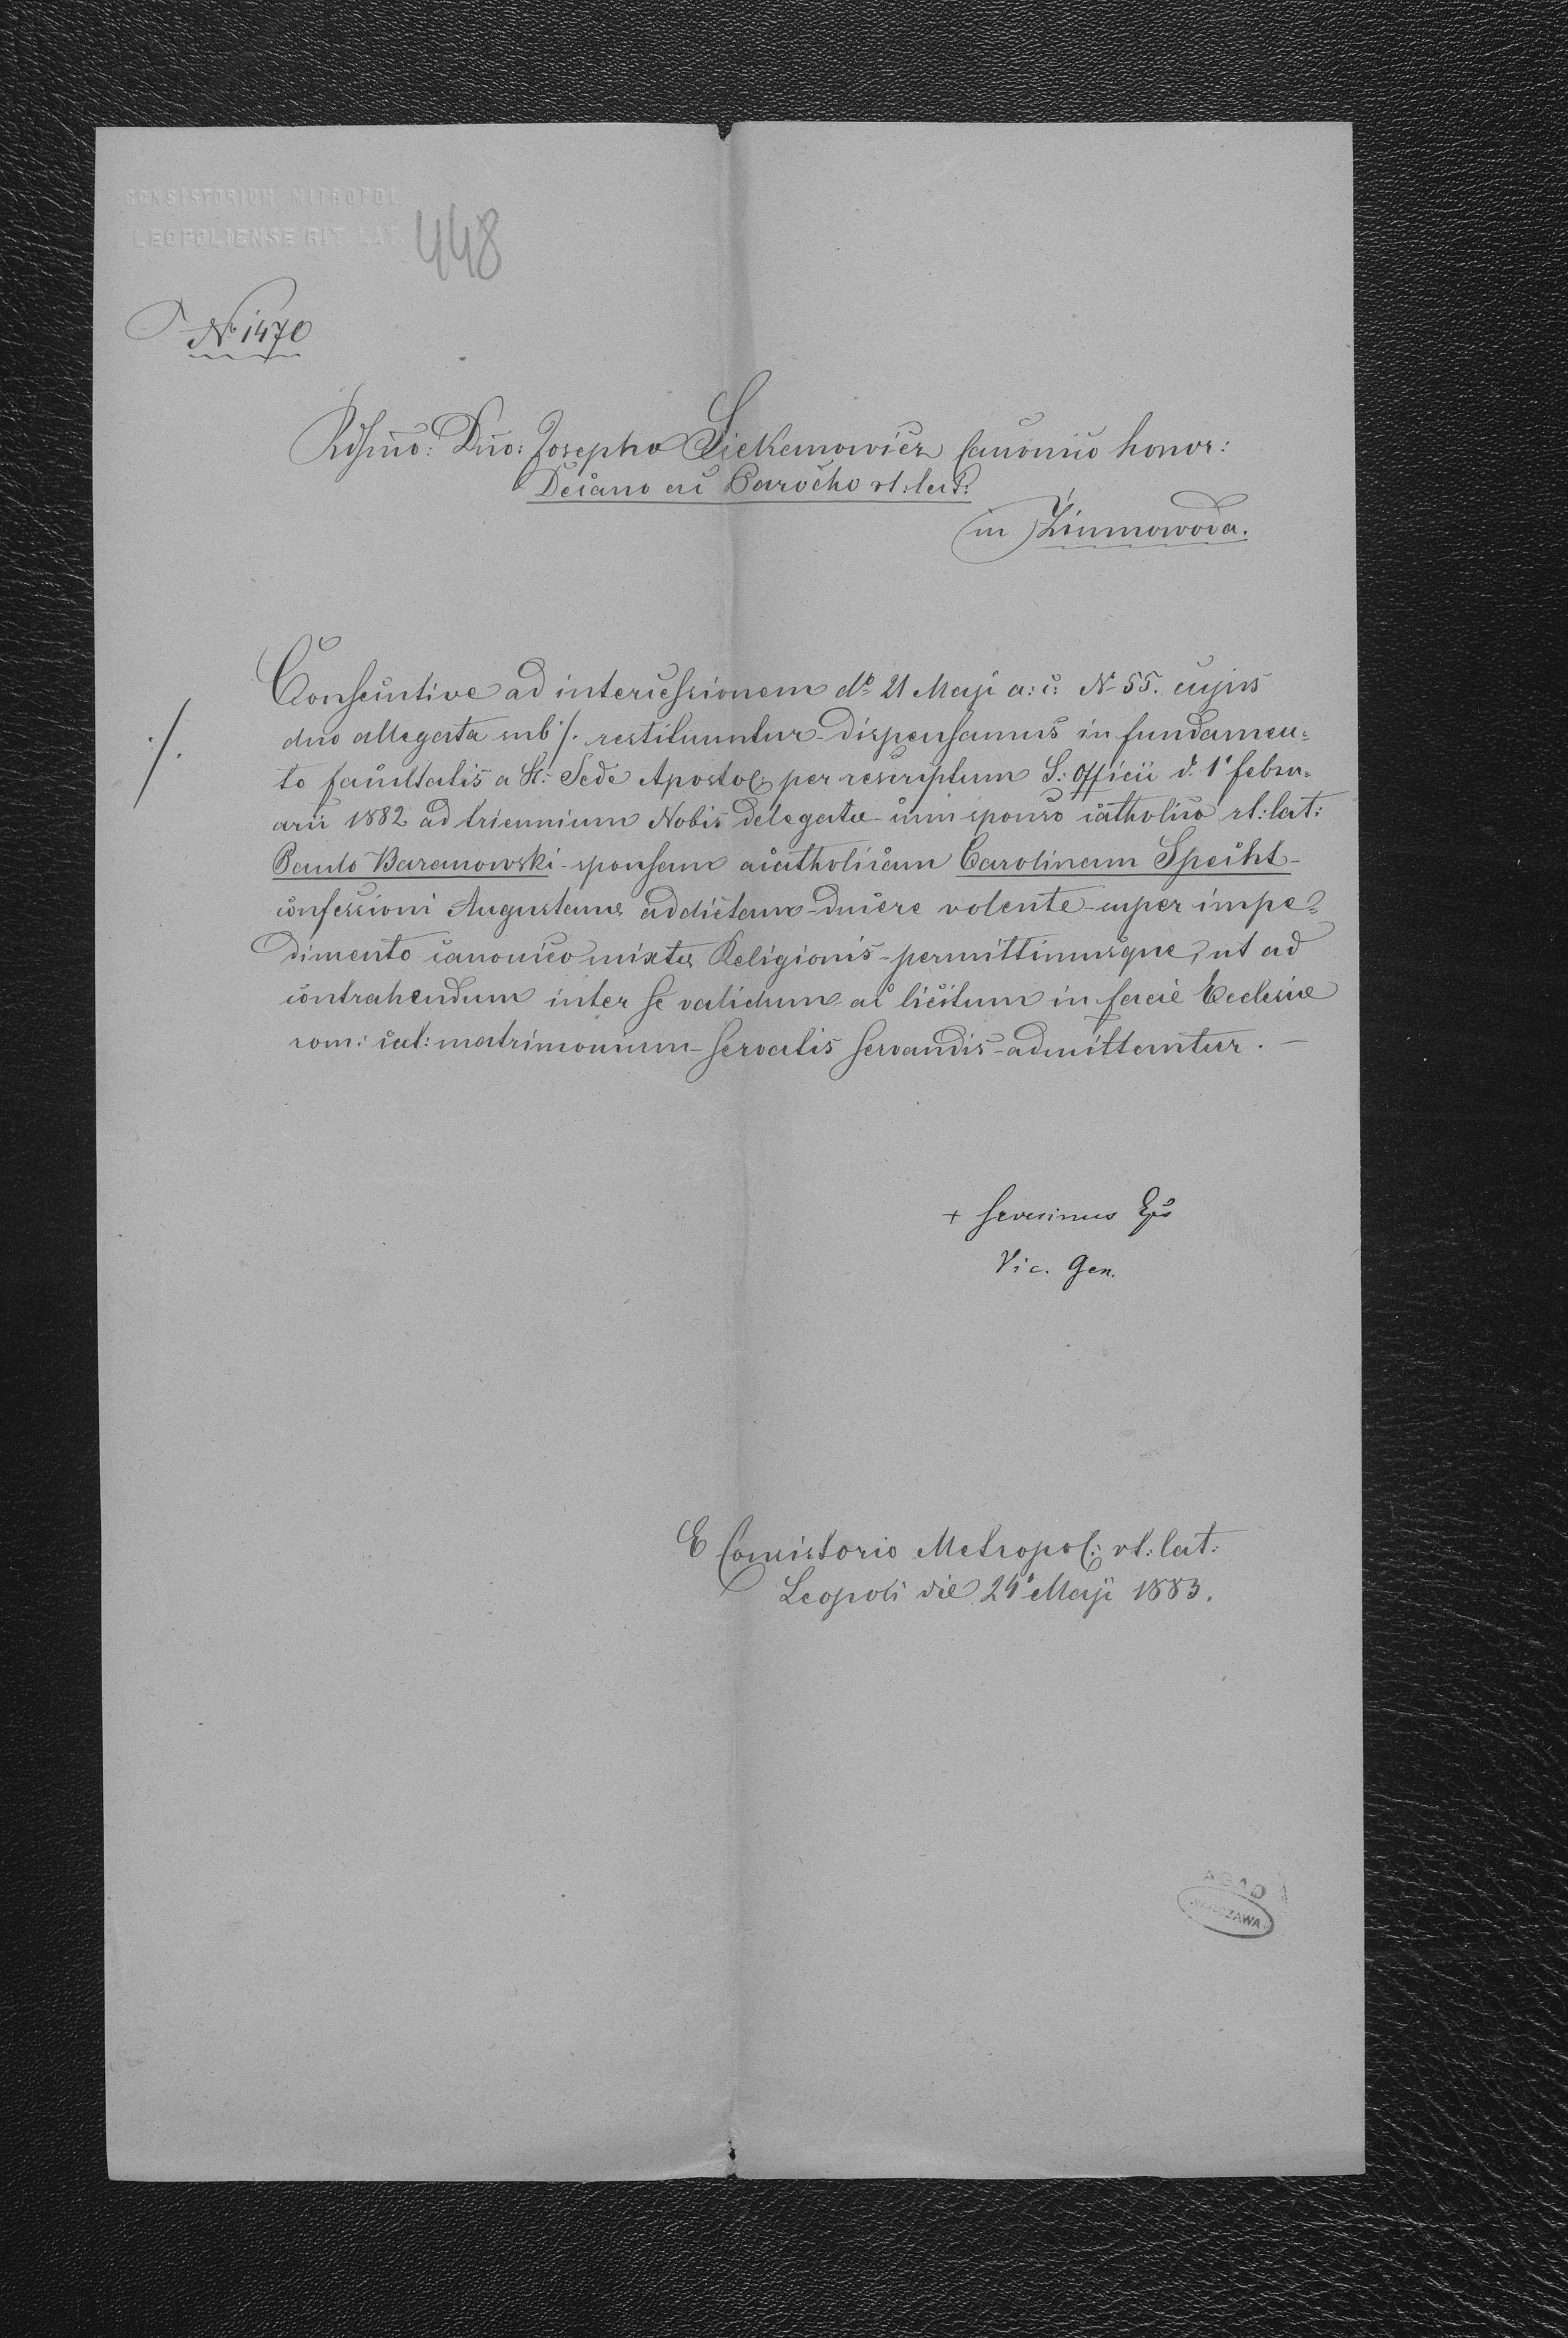 CONSISTORIUM METROPOL.
LEOPOLIENSE RIT. LAT.
448
№ 1470
Rdssmo: Dno: Josepho Siekemowicz Canonico honor:
Decano ac Parocho rt: lat:
in Zimnowoda.
Consecutive ad intercessionem dto 21 Maji a: c: N 55. cujus
./. duo allegata sub ·/. restituuntur - dispensamus in fundamen=
to facultatis a St: Sede Apostol: per rescriptum S: Officii d. 1ª febru=
arii 1882 ad triennium Nobis delegatæ - cum sponso catholico rt: lat:
Paulo Baranowski - sponsam acatholicam Carolinam Specht -
confessioni Augustanæ addictam - ducere volente - super impe=
dimento canonico mixtæ Religionis - permittimusque, ut ad
contrahendum inter se validum ac licitum in facie Ecclesiæ
rom: cat: matrimonium - servatis servandis - admittantur. —
+ Severinus Eps
Vic. Gen.
E Consistorio Metropol: rt: lat:
Leopoli die 24ª Maji 1883.
AGAD
WARSZAWA